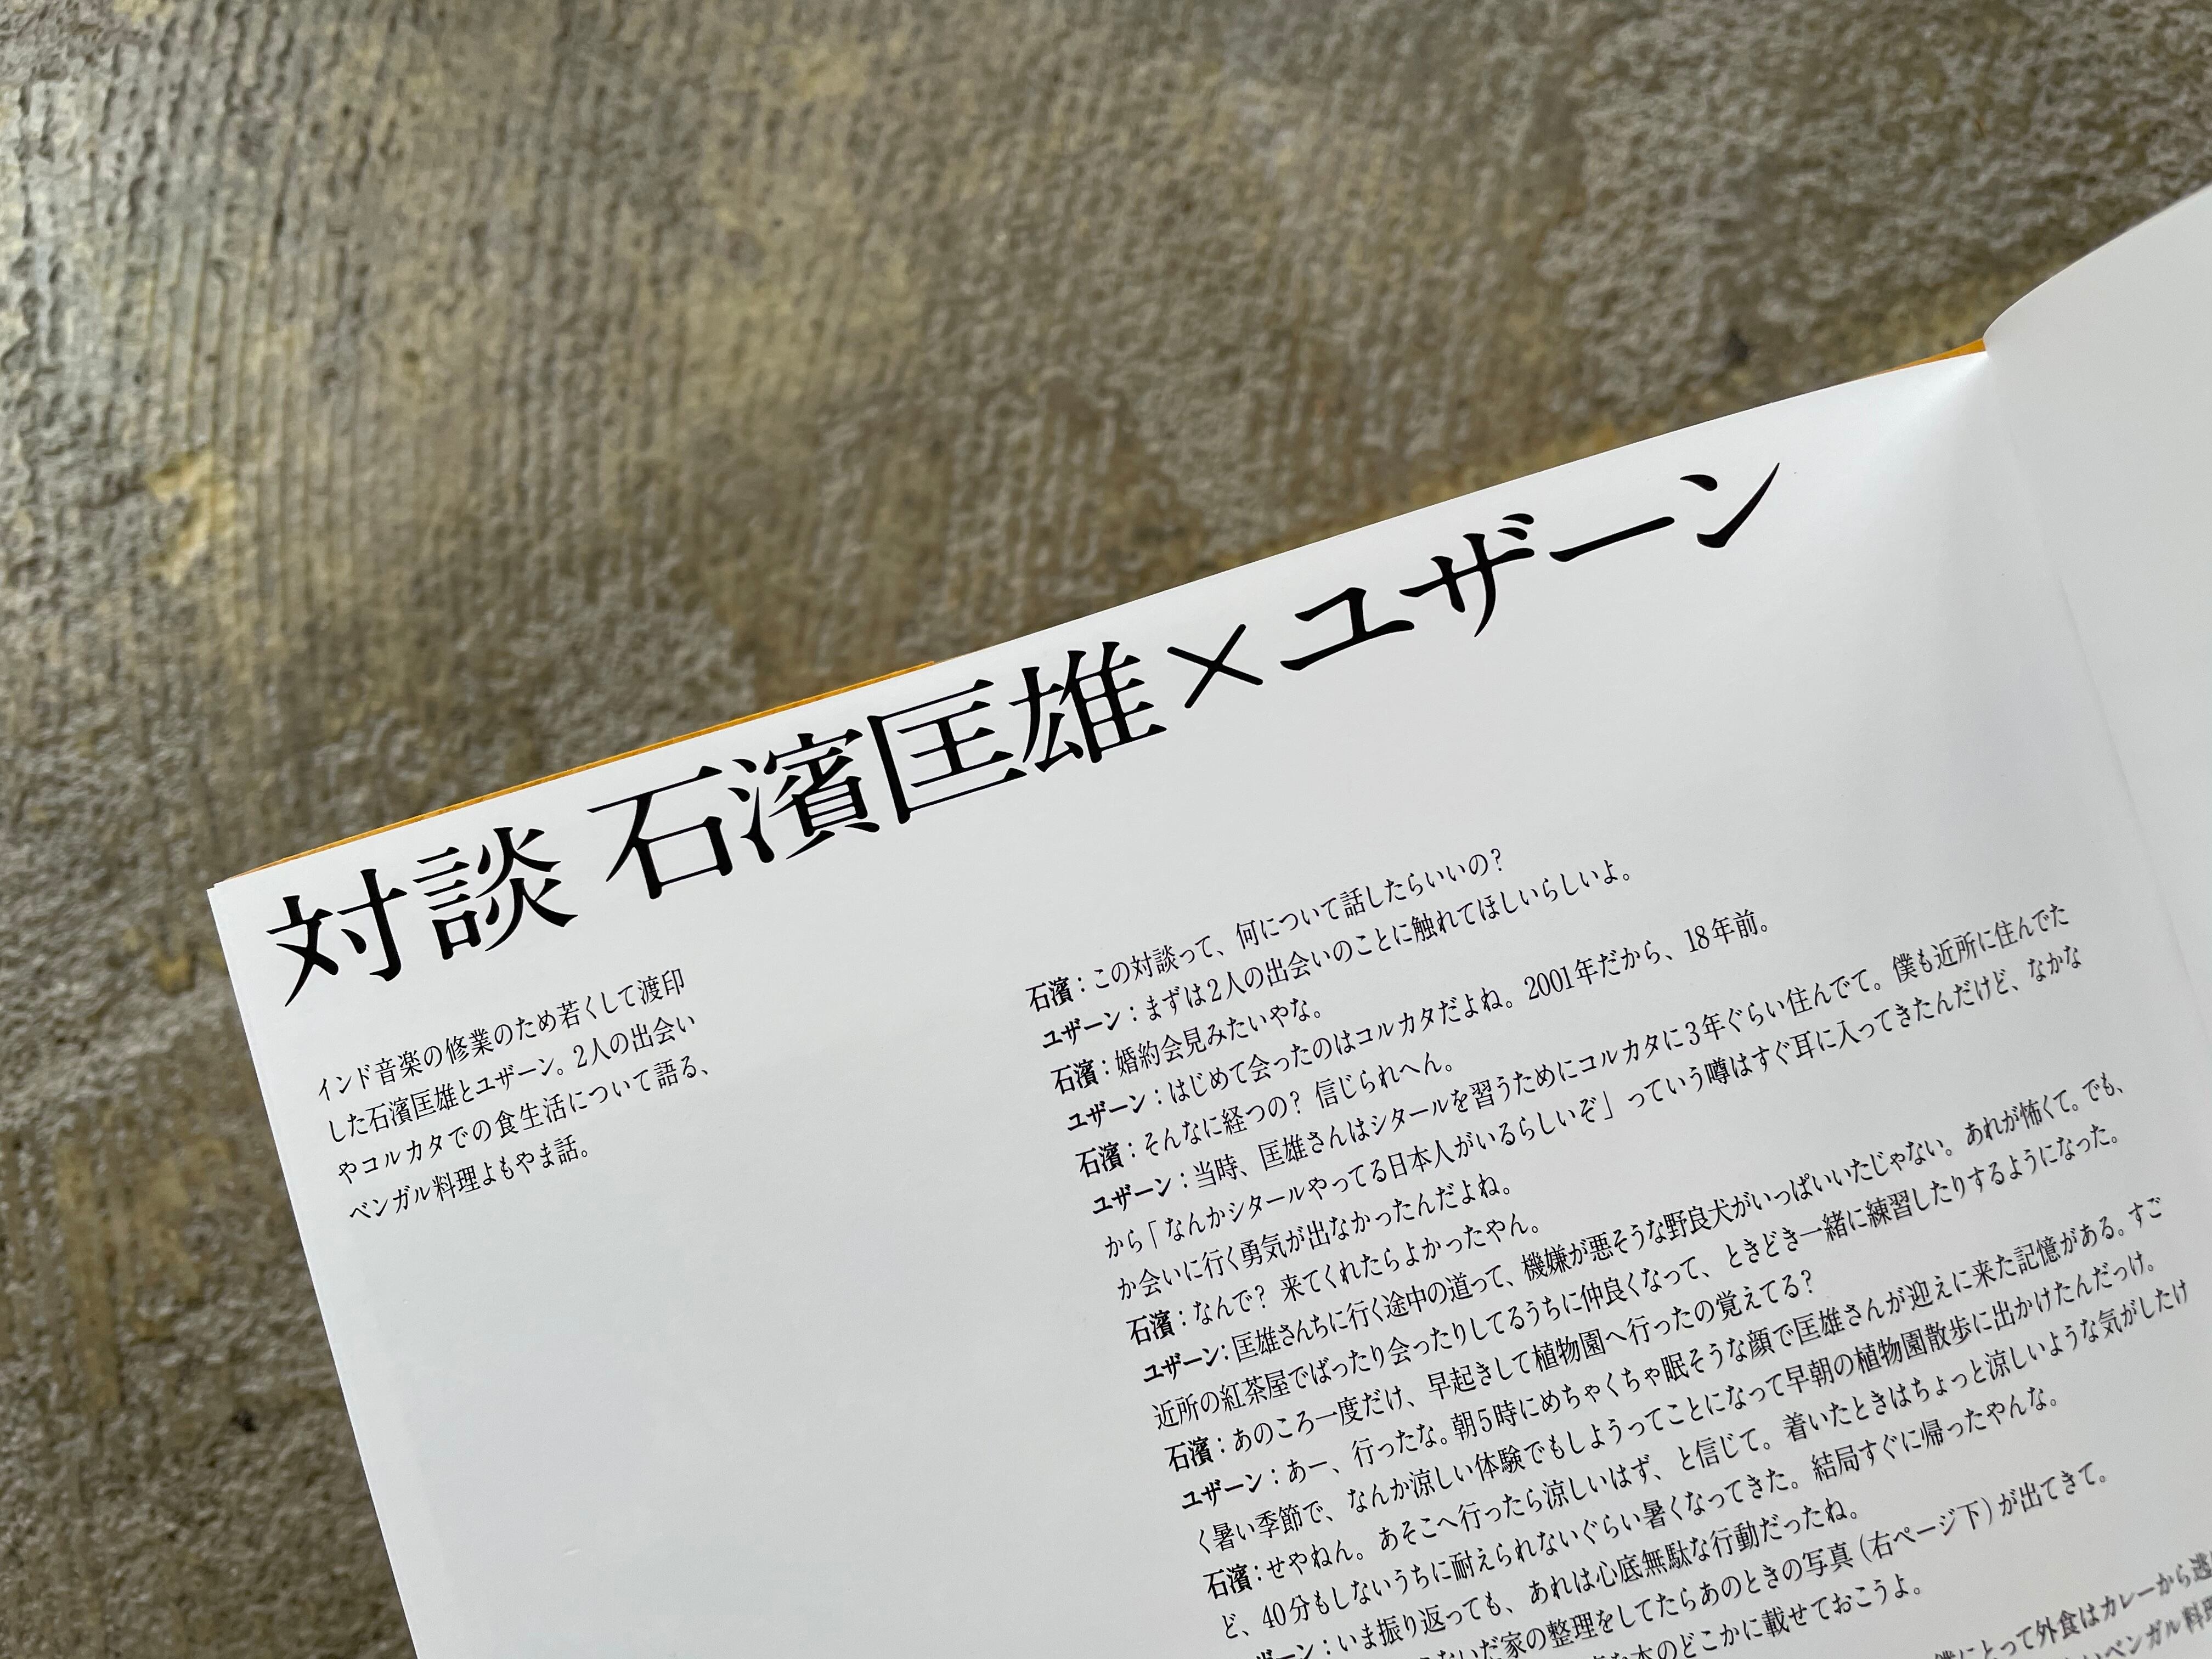 対談 石濱匡雄×ユザーン
インド音楽の修業のため若くして渡印
した石濱匡雄とユザーン。2人の出会い
やコルカタでの食生活について語る、
ベンガル料理よもやま話。
石濱：この対談って、何について話したらいいの？
ユザーン：まずは2人の出会いのことに触れてほしいらしいよ。
石濱：婚約会見みたいやな。
ユザーン：はじめて会ったのはコルカタだよね。2001年だから、18年前。
石濱：そんなに経つの？ 信じられへん。
ユザーン：当時、匡雄さんはシタールを習うためにコルカタに3年ぐらい住んでて。僕も近所に住んでた
から「なんかシタールやってる日本人がいるらしいぞ」っていう噂はすぐ耳に入ってきたんだけど、なかな
か会いに行く勇気が出なかったんだよね。
石濱：なんで？ 来てくれたらよかったやん。
ユザーン：匡雄さんちに行く途中の道って、機嫌が悪そうな野良犬がいっぱいいたじゃない。あれが怖くて。でも、
近所の紅茶屋でばったり会ったりしてるうちに仲良くなって、ときどき一緒に練習したりするようになった。
石濱：あのころ一度だけ、早起きして植物園へ行ったの覚えてる？
ユザーン：あー、行ったな。朝5時にめちゃくちゃ眠そうな顔で匡雄さんが迎えに来た記憶がある。すご
く暑い季節で、なんか涼しい体験でもしようってことになって早朝の植物園散歩に出かけたんだっけ。
石濱：せやねん。あそこへ行ったら涼しいはず、と信じて。着いたときはちょっと涼しいような気がしたけ
ど、40分もしないうちに耐えられないぐらい暑くなってきた。結局すぐに帰ったやんな。
ザーン：いま振り返っても、あれは心底無駄な行動だったね。
ないだ家の整理をしてたらあのときの写真（右ページ下）が出てきて。
本のどこかに載せておこうよ。
僕にとって外食はカレーから逃
いベンガル料理